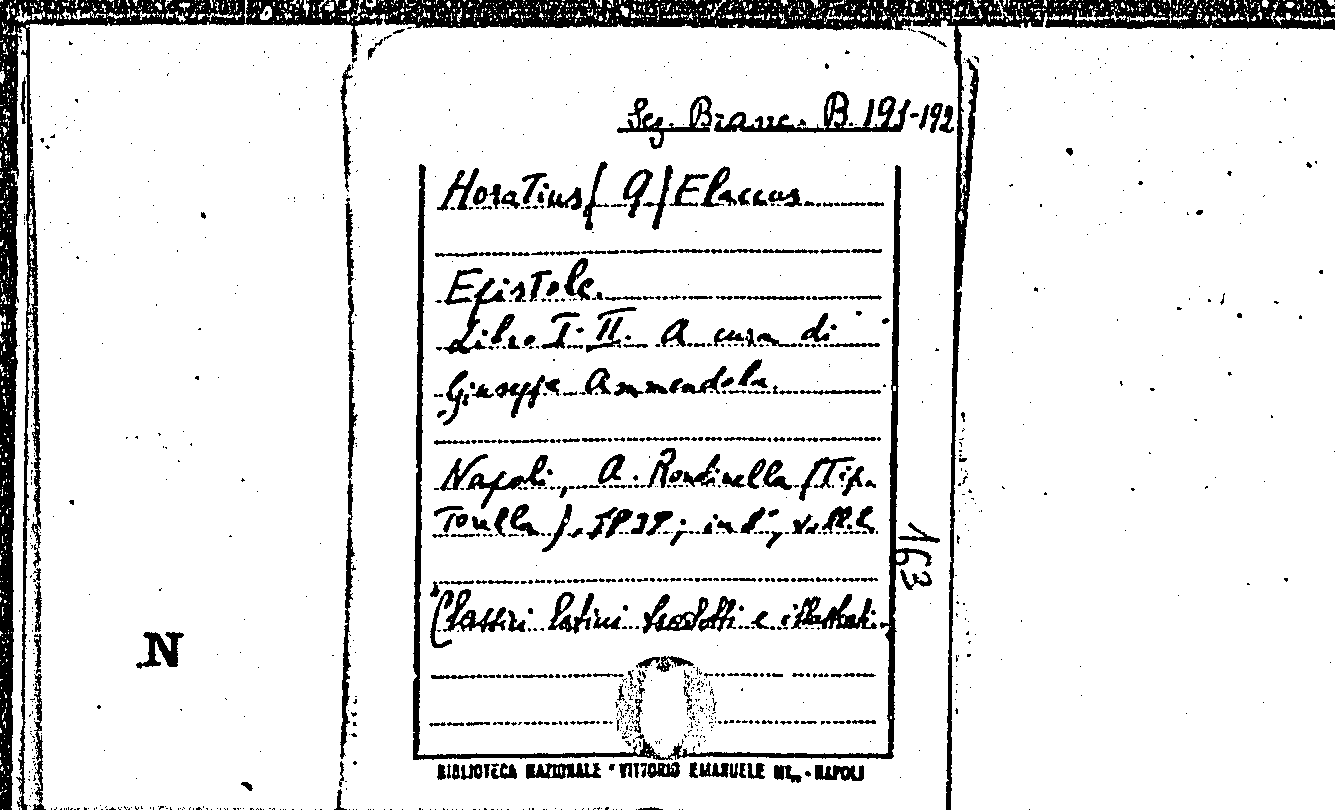 Sez. Branc. B. 191-192
Horatius (Q) Flaccus
Epistole.
Libro I-II. A cura di
Giuseppe Ammendola.
Napoli, A. Rondinella (Tip.
Torella), 1939; in 8°, voll. 2
163
Classici latini tradotti e illustrati.
N
BIBLIOTECA NAZIONALE "VITTORIO EMANUELE III" - NAPOLI